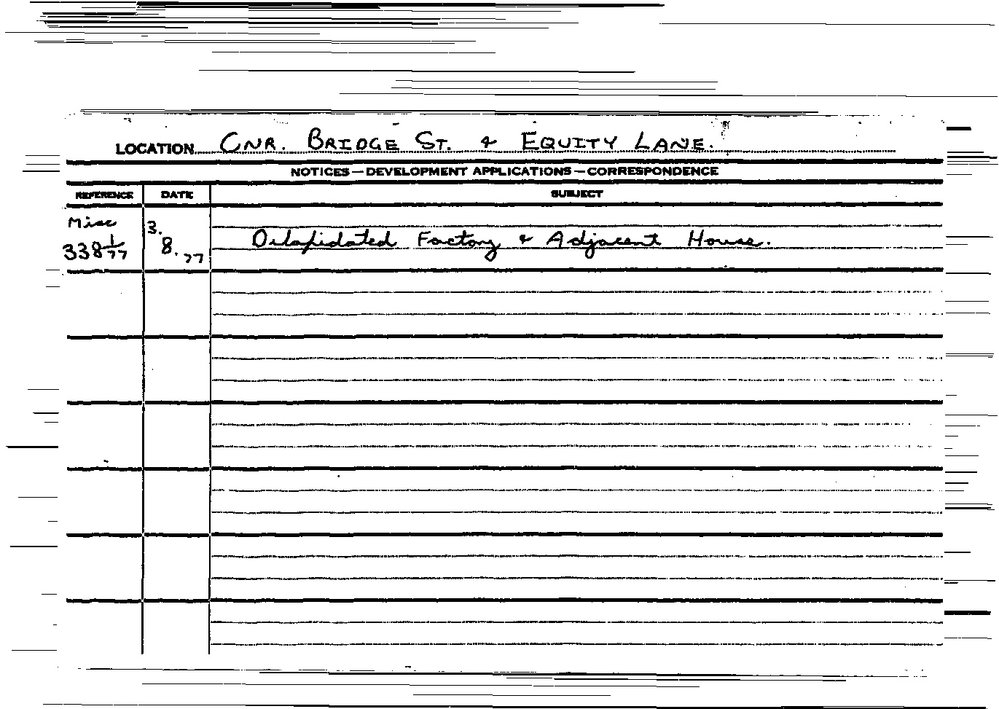 LOCATION CNR. BRIDGE ST. & EQUITY LANE.
NOTICES—DEVELOPMENT APPLICATIONS—CORRESPONDENCE
REFERENCE DATE SUBJECT
Misc 3.
338 1/77 8. 77 Dilapidated Factory & Adjacent House.